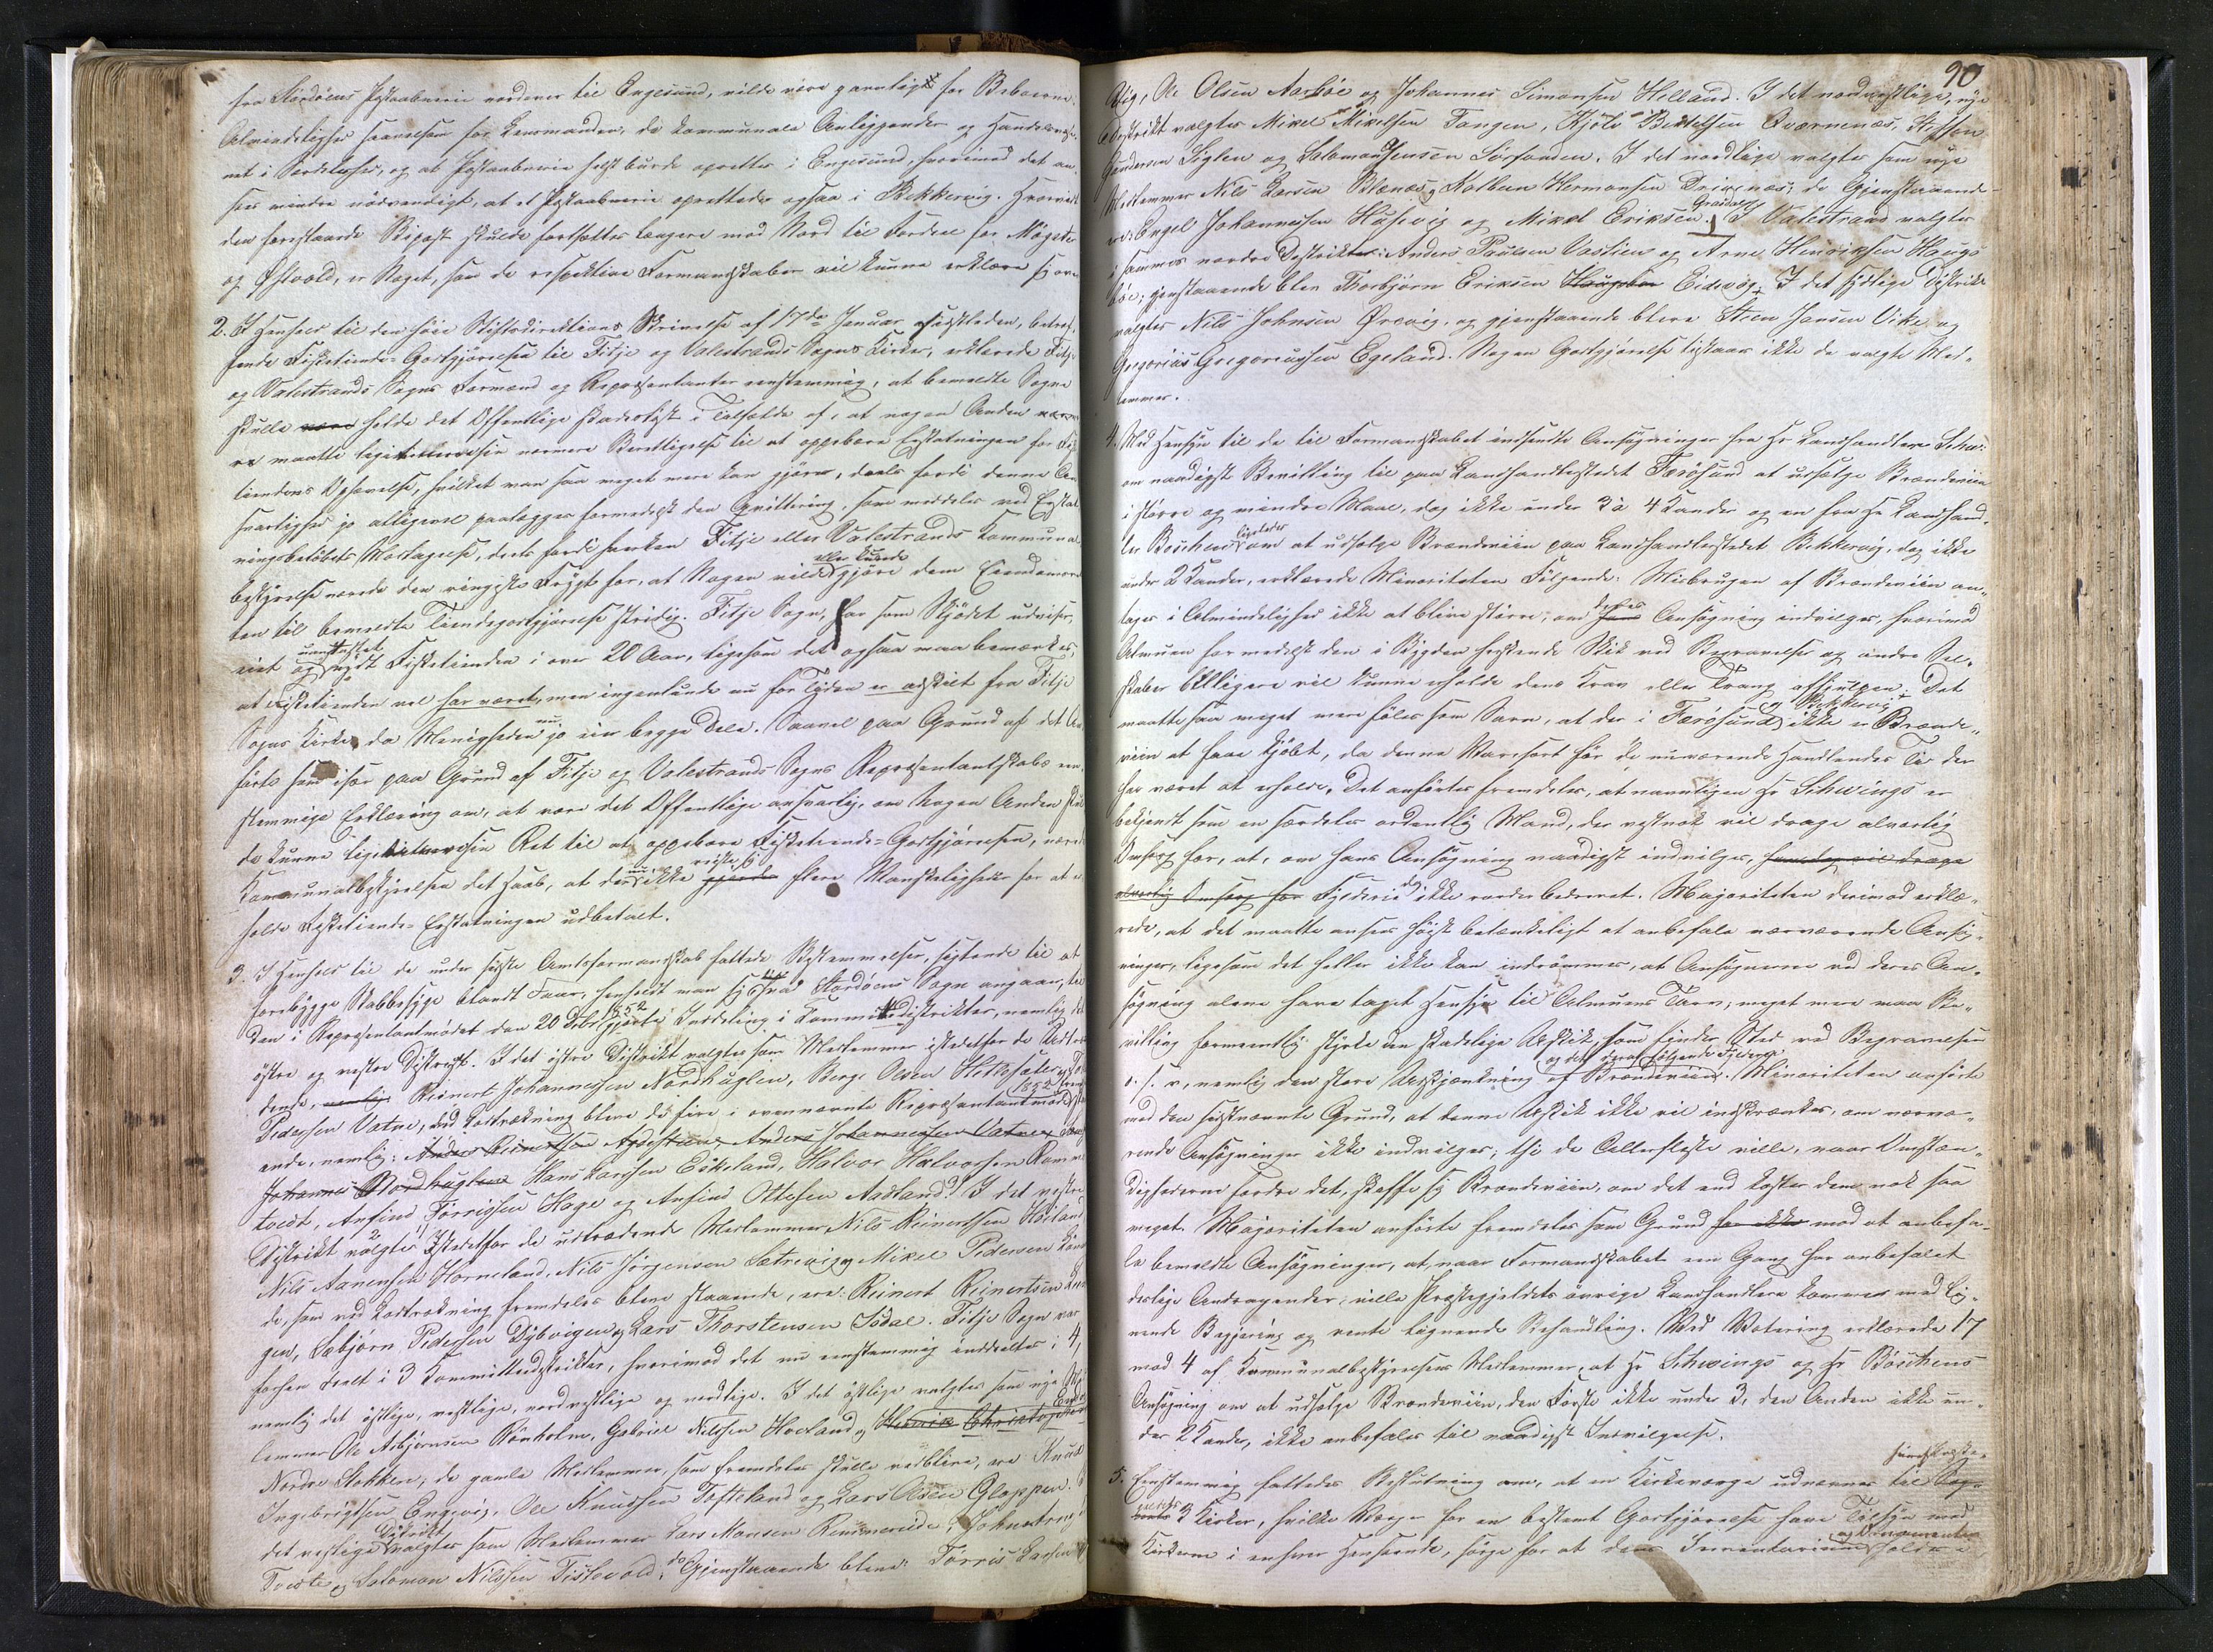 fra Stordöens Postaabnerie nordover til Engesund, vilde være gavnligst for Beboerne
Almindelighed saavelsom for Lensmanden, de kommunale Anliggender og Handels
net i Særdeleshed, og at Postaabnerie helst burde oprettes i Engesund, hvorimod det an-
sees mindre nödvendigt, at et Postaabnerie oprettedes ogsaa i Bekkervig. Hvorvidt
den foreslaaede Bipost skulde fortsættes længere mod Nord til Fordeel for Mögster
og Östvold, er Noget, som de respektive Formandskaber vil kunne erklære sig over
2. I Henseende til den höie Stiftsdirektions Skrivelse af 17de Januar sidstleden, betref-
fende Fisketiende-Godtgjörelsen til Fitje og Valestrands Sogns Kirker, erklærede Fitje
og Valestrands Sogns Formænd og Repræsentanter eenstemmig, at bemeldte Sogne
skulle holde det Offentlige skadeslöst i Tilfælde af, at nogen Anden
maatte legitimere sin nærmere Berettigelse til at oppebære Erstatningen for Fiske-
tiendens Ophævelse, hvilket man saa meget mere kan gjöre, deels fordi denne An-
svarlighed jo alligevel paalægges formedelst den Qvittering, som meddeles ved Erstat-
ningsbelöbets Modtagelse, deels fordi hverken Fitje eller Valestrands Kommunal-
bestyrelse nærede den ringeste Frygt for, at Nogen vilde eller kunde gjöre dem Eiendomsret-
ten til bemeldte Tiendegodtgjörelse stridig. Fitje Sogn har som Skjödet udviser,
eiet og uanfægtet nydt Fisketienden i over 20 Aar, ligesom det ogsaa maa bemærkes,
at Fisketienden vel har været, men ingenlunde nu for Tiden er adskilt fra Fitje
Sogns Kirke, da Menigheden nu jo eier begge Dele. Saavel paa Grund af det An-
förte som især paa Grund af Fitje og Valestrands Sogns Repræsentantskabs een-
stemmige Erklæring om, at være det Offentlige ansvarlig, om Nogen Anden skul-
de kunne legitimere sin Ret til at oppebære Fisketiende-Godtgjörelsen, nærede
Kommunalbestyrelsen det Haab, at der nu ikke reiste sig flere Vanskeligheder for at er-
holde Fisketiende-Erstatningen udbetalt.
3. I Henseende til de under sidste Amtsformandskab fattede Bestemmelser, sigtende til at
forebygge Skabbesyge blandt Faar, henholdt man sig, hvad Stordöens Sogn angaaer, til
den i Repræsentantmödet den 20 Debr 1852 gjorte Inddeling i Kommitteedistrikter, nemlig det
östre og vestre Distrikt. I det östre Distrikt valgtes som Medlemmer istedetfor de Udtræ-
dende, Reinert Johannesen Nordhuglen, Berge Olsen Hettesæter og
Pedersen Vatne, ved Lodtrækning bleve de fire i ovennævnte Repræsentantmöde 1852
ende, nemlig: Anders Reinertsen Anders Johannesen Vatne
Johannes Nordhuglen Hans Larssen Eskeland, Halvor Halvorsen
tvedt, Anfind Törrisen Hage og Anfind Ottesen Aadland. I det vestre
Distrikt valgtes Istedetfor de udtrædende Medlemmer, Nils Reinertsen Höiland
Nils Aanensen Horneland, Nils Jörgensen Sætrevig og Mikel Pedersen
de, som ved Lodtrækning fremdeles bleve staaende, ere: Reinert Reinertsen
gen, Sæbjörn Pedersen Dybvigen og Lars Thorstensen Södal. Fitje Sogn var
forhen deelt i 3 Kommitteedistrikter, hvorimod det nu eenstemmig inddeeltes i 4,
nemlig det östlige, vestlige, nordvestlige og nordlige. I det östlige valgtes som nye Med-
lemmer Ole Asbjörnsen Rönholm, Gabriel Nilssen Hovland og Henrik Christophersen
Nordre Stokken; de gamle Medlemmer, som fremdeles skulle vedblive, ere Knud
Ingebrigtsen Engevig, Ole Knudsen Tofteland og Lars Olsen Gloppen. I
det vestlige Distrikt valgtes som Medlemmer Lars Monsen Rimmereide, Johannes
Tveite og Salomon Nilssen Tislevold; de Gjenstaaende bleve: Törris Larsen
90
Vig, Ole Olsen Aarböe og Johannes Simonsen Helland. I det nordvestlige, nye
Distrikt valgtes Mikel Mikelsen Tangen, Kjölv Bertelsen Qværnenæs, Steffen
Gundersen Siglen og Salomon Jensen Sörfonden. I det nordlige valgtes som nye
Medlemmer Nils Larsen Blænæs og Kolbein Hermansen Drivenæs; de Gjenstaaende
ere: Engel Johannessen Husevig og Mikel Eriksen Graadal. I Valestrand valgtes
i sammes nordre Distrikt: Anders Poulsen Vastien og Arne Henriksen Haugs-
böe; gjenstaaende blev Thorbjörn Eriksen Haugsböe Eidevig. I det sydlige Distrikt
valgtes Nils Johnsen Ørevig, og gjenstaaende bleve Steen Jansen Vike og
Gregorius Gregoriussen Egeland. Nogen Godtgjörelse tilstaaes ikke de valgte Med-
lemmer.
4. Med Hensyn til de til Formandskabet indsendte Ansögninger fra Hr Landhandler Schwi
om naadigst Bevilling til paa Landhandlerstedet Færösund at udsælge Brændeviin
i större og mindre Maal, dog ikke under 3 à 4 Kander og en fra Hr Landhand-
ler Böschen ligeledes om at udsælge Brændeviin paa Landhandlerstedet Bekkervig, dog ikke
under 2 Kander, erklærede Minoriteten Fölgende: Misbrugen af Brændeviin an-
tages i Almindelighed ikke at blive större, om deres Ansögning indvilges, hvorimod
Almuen formedelst den i Bygden herskende Skik ved Begravelser og andre Sel-
skaber billigere vil kunne erholde dens Krav eller Trang afhjulpen. Det
maatte saa meget mere föles som Savn, at der i Færösund og Bekkervig ikke er Brænde-
viin at faae kjöbt, da denne Varesort för de nuværende Handlendes Tid der
har været at erholde. Det anförtes fremdeles, at navnligen Hr Schwings er
bekjendt som en særdeles ordentlig Mand, der vistnok vil drage alvorlig
Omsorg for, at, om hans Ansögning naadigst indvilges, han dog vil drage
alvorlig Omsorg for Fylderie dog ikke vorder bedrevet. Majoriteten derimod erklæ-
rede, at det maatte ansees höist betænkeligt at anbefale nærværende Ansög-
ninger, ligesom det heller ikke kan indrömmes, at Ansögerne ved deres An-
sögning alene have taget Hensyn til Almuens Tarv; meget mere maa Be-
villing formeentlig styrke den skadelige Uskik, som finder Sted ved Begravelser
o. s. v., nemlig den store Udskjænkning af Brændeviin og det deraf fölgende Fylderie. Minoriteten anförte
mod den sidstnævnte Grund, at denne Uskik ikke vil indskrænkes, om nærvæ-
rende Ansögninger ikke indvilges; thi de Allerfleste ville, naar Omstæn-
dighederne fordre det, skaffe sig Brændeviin, om det end koster dem nok saa
meget. Majoriteten anförte fremdeles som Grund for ikke mod at anbefa-
le bemeldte Ansögninger, at, naar Formandskabet een Gang har anbefalet
deslige Andragender, ville Præstegjeldets övrige Landhandlere komme med lig-
nende Begjering og vente lignende Behandling. Ved Votering erklærede 17
mod 4 af Kommunalbestyrelsens Medlemmer, at Hr Schwings og Hr Böschens
Ansögning om at udsælge Brændeviin, den Förste ikke under 3, den Anden ikke un-
der 2 Kander, ikke anbefales til naadigst Indvilgelse.
5. Eenstemmig fattedes Beslutning om, at en Kirkeværge udnævnes til Sog-
3 Kirker, hvilke Værger for en bestemt Godtgjörelse have Tilsyn med
Kirkerne i enhver Henseende, sörge for at deres Inventarium og Ornamenter holdes i